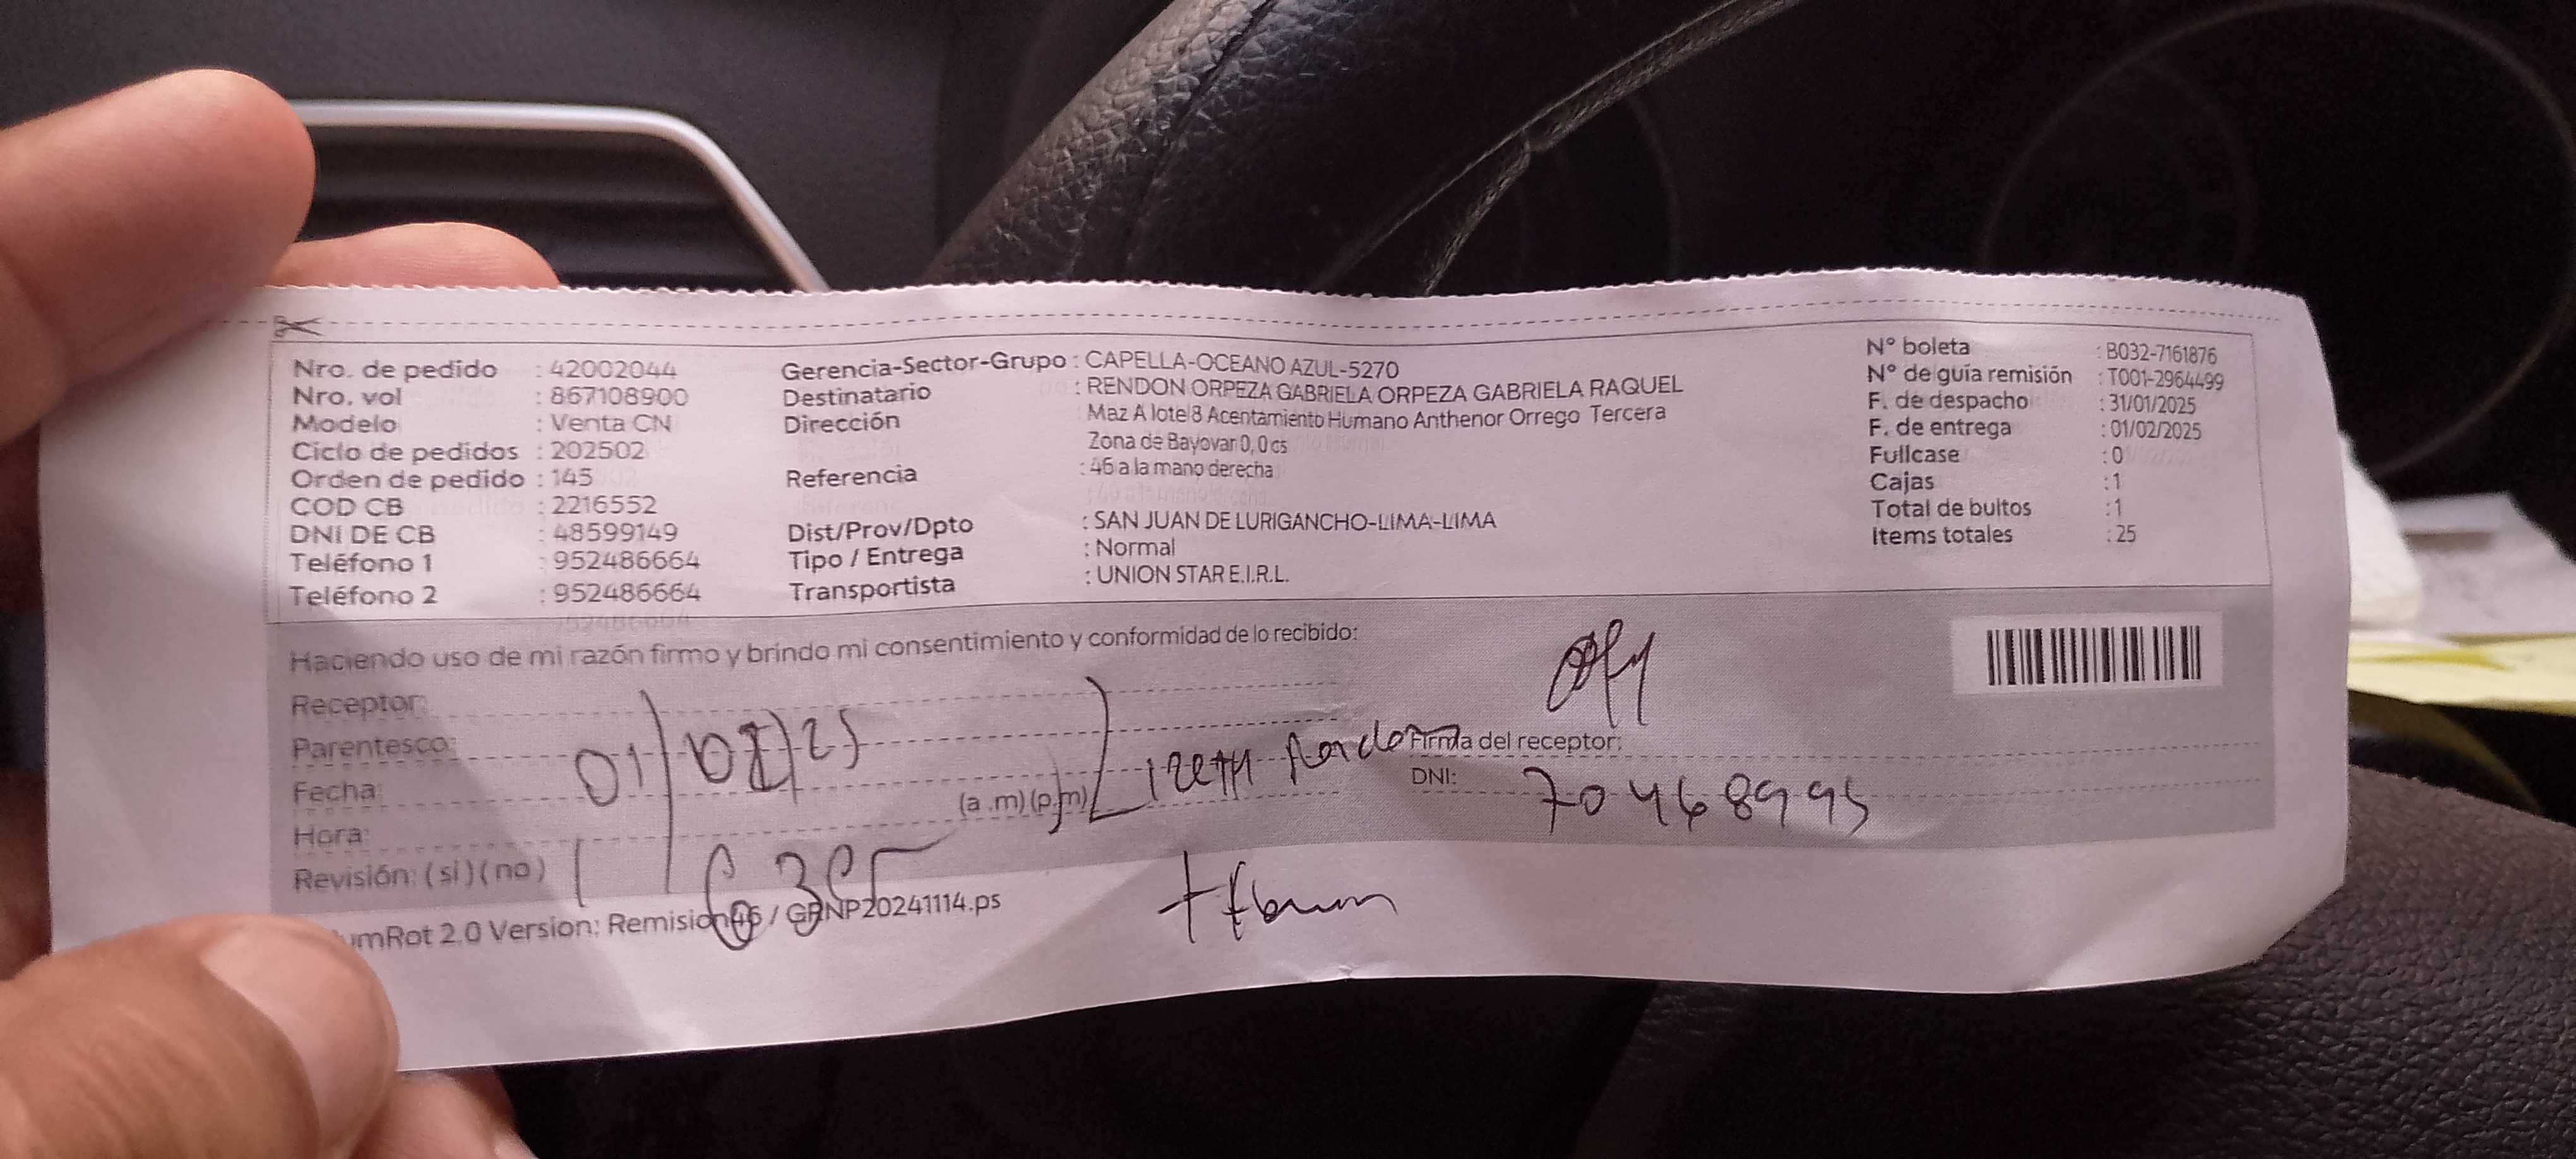 Nro. de pedido : 42002044
Nro. vol : 867108900
Modelo : Venta CN
Ciclo de pedidos : 202502
Orden de pedido : 145
COD CB : 2216552
DNI DE CB : 48599149
Teléfono 1 : 952486664
Teléfono 2 : 952486664
Gerencia-Sector-Grupo : CAPELLA-OCEANO AZUL-5270
Destinatario : RENDON ORPEZA GABRIELA ORPEZA GABRIELA RAQUEL
Dirección Maz A lote 8 Acentamiento Humano Anthenor Orrego Tercera
Zona de Bayovar 0, 0 cs
Referencia : 46 a la mano derecha
Dist/Prov/Dpto : SAN JUAN DE LURIGANCHO-LIMA-LIMA
Tipo / Entrega : Normal
Transportista : UNION STAR E.I.R.L.
N° boleta : B032-7161876
N° de guía remisión : T001-2964499
F. de despacho : 31/01/2025
F. de entrega : 01/02/2025
Fullcase : 0
Cajas : 1
Total de bultos : 1
Items totales : 25
Haciendo uso de mi razón firmo y brindo mi consentimiento y conformidad de lo recibido:
Receptor:
Parentesco:
Fecha: 01/02/25
Hora: (a .m) (p.m)
Revisión: ( si ) ( no )
Firma del receptor:
DNI: 704468995
umRot 2.0 Version: Remision46 / GRNP20241114.ps